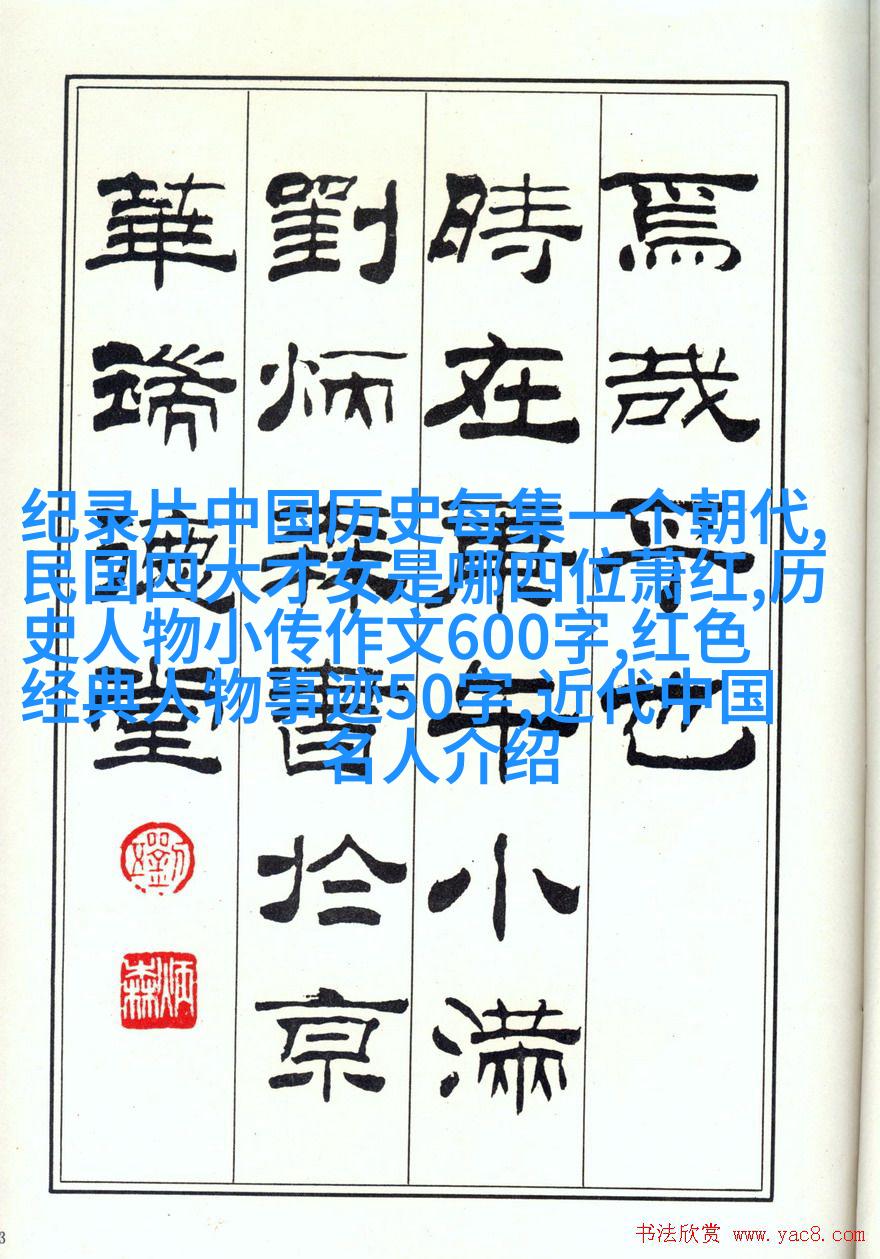 焉哉乎也
時在庚午小滿
劉炳森書於京
華堂
炳森
纪录片中国历史每集一个朝代,
民国四大才女是哪四位萧红,历
史人物小传作文600字,红色
经典人物事迹50字,近代中国
名人介绍
3
书法欣赏 www.yac8.com